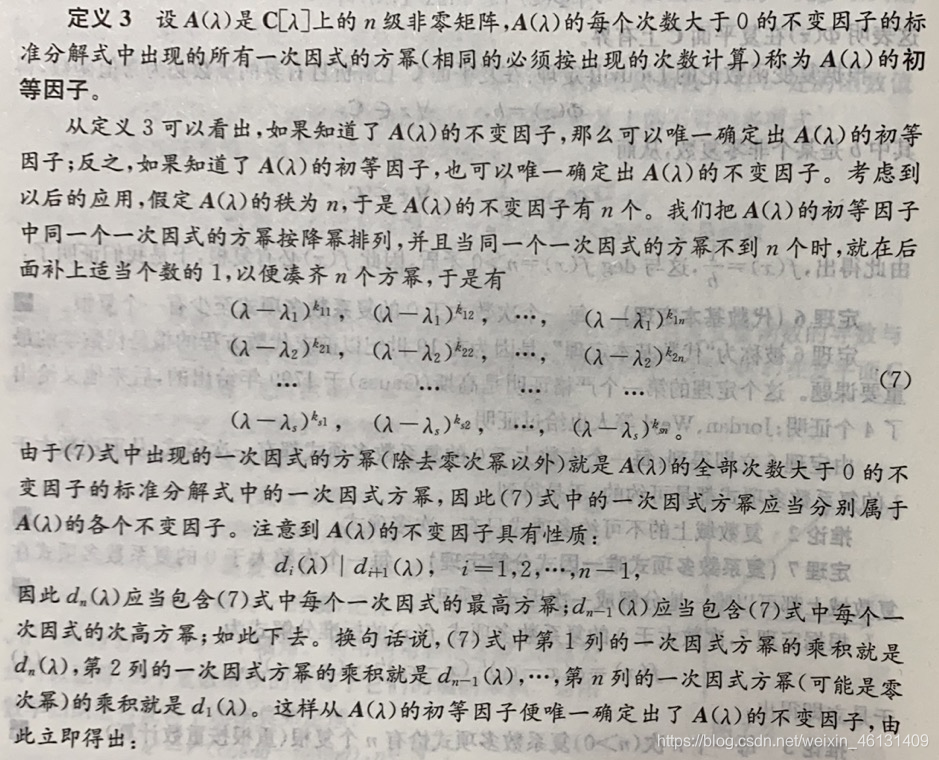 定义3 设A(λ)是C[λ]上的n级非零矩阵,A(λ)的每个次数大于0的不变因子的标
准分解式中出现的所有一次因式的方幂(相同的必须按出现的次数计算)称为A(λ)的初
等因子。
从定义3可以看出,如果知道了A(λ)的不变因子,那么可以唯一确定出A(λ)的初等
因子;反之,如果知道了A(λ)的初等因子,也可以唯一确定出A(λ)的不变因子。考虑到
以后的应用,假定A(λ)的秩为n,于是A(λ)的不变因子有n个。我们把A(λ)的初等因子
中同一个一次因式的方幂按降幂排列,并且当同一个一次因式的方幂不到n个时,就在后
面补上适当个数的1,以便凑齐n个方幂,于是有
(λ-λ₁)^{k₁₁}, (λ-λ₁)^{k₁₂}, …, (λ-λ₁)^{k₁ₙ}
(λ-λ₂)^{k₂₁}, (λ-λ₂)^{k₂₂}, …, (λ-λ₂)^{k₂ₙ}
… … … … (7)
(λ-λₛ)^{kₛ₁}, (λ-λₛ)^{kₛ₂}, …, (λ-λₛ)^{kₛₙ}。
由于(7)式中出现的一次因式的方幂(除去零次幂以外)就是A(λ)的全部次数大于0的不
变因子的标准分解式中的一次因式方幂,因此(7)式中的一次因式方幂应当分别属于
A(λ)的各个不变因子。注意到A(λ)的不变因子具有性质:
dᵢ(λ) | dᵢ₊₁(λ), i=1,2,…,n-1,
因此dₙ(λ)应当包含(7)式中每个一次因式的最高方幂;dₙ₋₁(λ)应当包含(7)式中每个一
次因式的次高方幂;如此下去。换句话说,(7)式中第1列的一次因式方幂的乘积就是
dₙ(λ),第2列的一次因式方幂的乘积就是dₙ₋₁(λ),…,第n列的一次因式方幂(可能是零
次幂)的乘积就是d₁(λ)。这样从A(λ)的初等因子便唯一确定出了A(λ)的不变因子,由
此立即得出:
https://blog.csdn.net/weixin_46131409